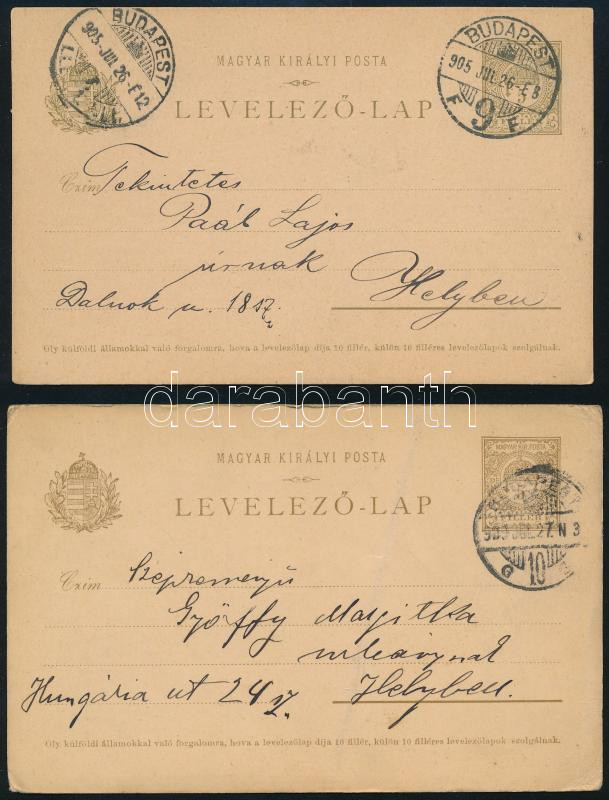 BUDAPEST
905 JUL. 26 - É 12
BUDAPEST
905 JUL. 26 - É 8
F 9 F
MAGYAR KIRÁLYI POSTA
LEVELEZŐ-LAP
Czím Tekintetes
Paál Lajos
úrnak
Helyben
Dalnok u. 18 sz.
Oly külföldi államokkal való forgalomra, hova a levelezőlap díja 10 fillér, külön 10 filléres levelezőlapok szolgálnak.
darabanth
MAGYAR KIRÁLYI POSTA
LEVELEZŐ-LAP
BUDAPEST
905 JUL. 27. N 3
G 10
Czím Szépreményű
Györffy Margitka
urleánynak
Helyben.
Hungária út 24 sz.
Oly külföldi államokkal való forgalomra, hova a levelezőlap díja 10 fillér, külön 10 filléres levelezőlapok szolgálnak.